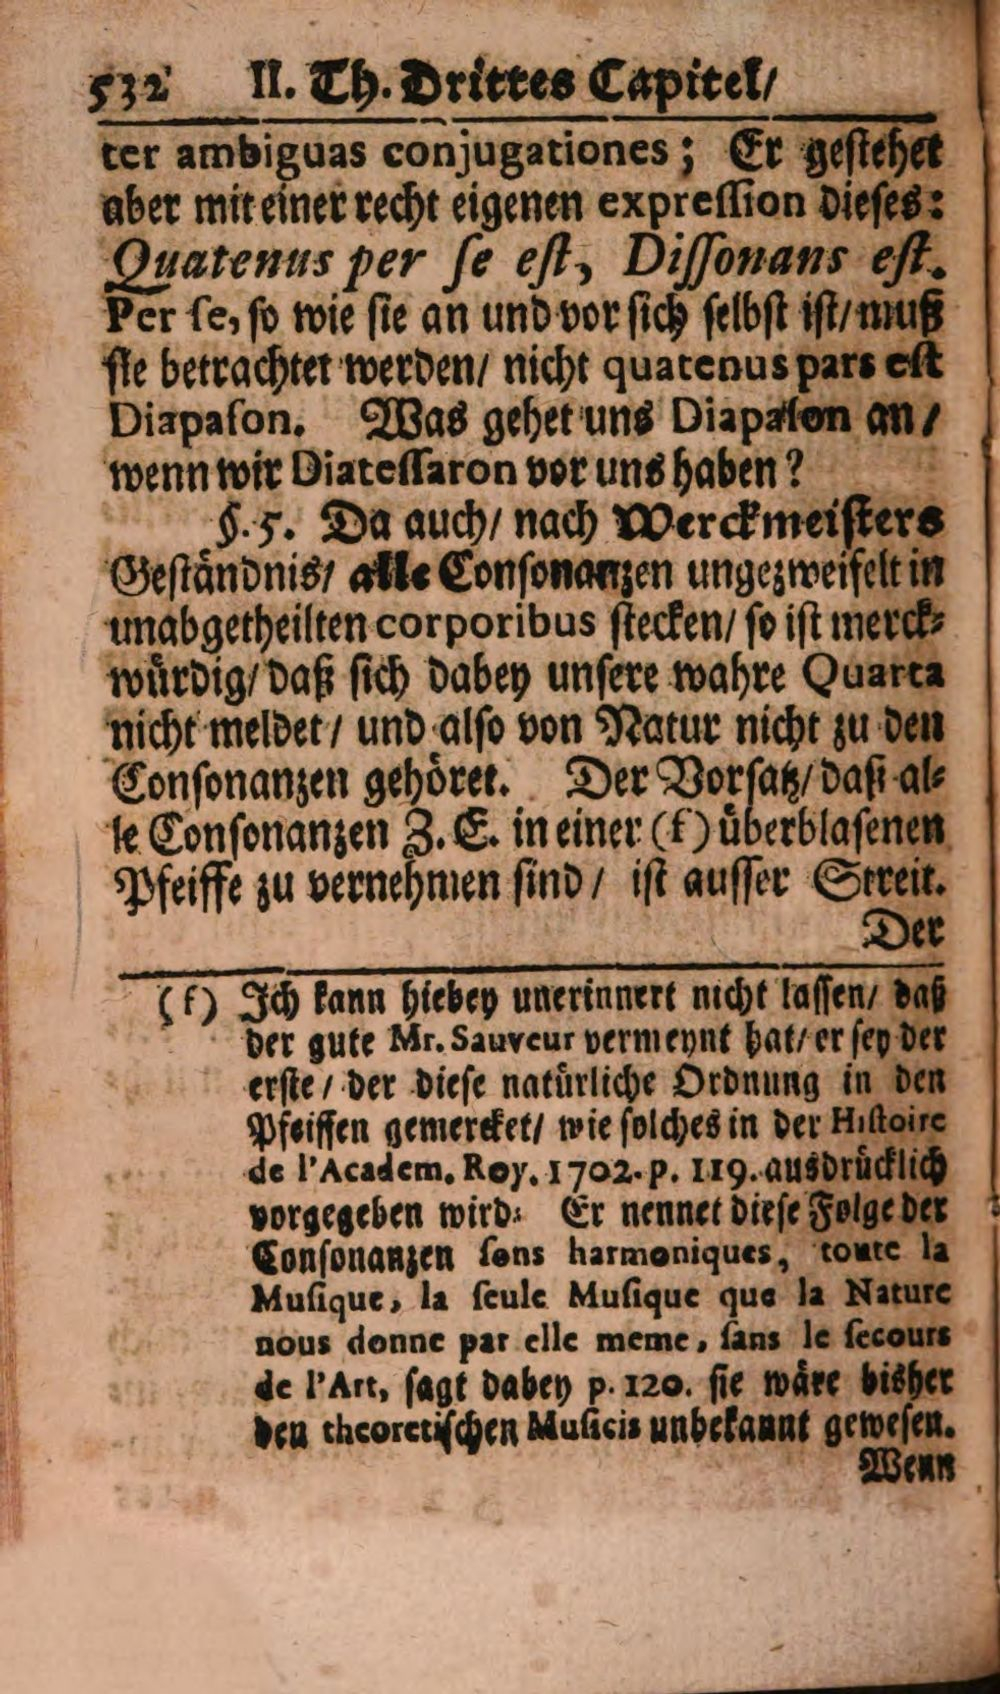 532 II. Th. Drittes Capitel/
ter ambiguas conjugationes; Er gestehet
aber mit einer recht eigenen expression dieses:
Quatenus per ſe eſt, Diſſonans eſt.
Per ſe, ſo wie ſie an und vor ſich ſelbſt iſt/ muß
ſie betrachtet werden/ nicht quatenus pars eſt
Diapaſon. Was gehet uns Diapaſon an/
wenn wir Diateſſaron vor uns haben?
§. 5. Da auch/ nach Werckmeiſters
Geſtändnis/ alle Conſonanzen ungezweifelt in
unabgetheilten corporibus ſtecken/ ſo iſt merck-
würdig/ daß ſich dabey unſere wahre Quarta
nicht meldet/ und alſo von Natur nicht zu den
Conſonanzen gehöret. Der Vorſatz/ daß al-
le Conſonanzen Z. E. in einer (f) überblaſenen
Pfeiffe zu vernehmen ſind/ iſt auſſer Streit.
Der
(f) Ich kann hiebey unerinnert nicht laſſen/ daß
der gute Mr. Sauveur vermeynt hat/ er ſey der
erſte/ der dieſe natürliche Ordnung in den
Pfeiffen gemercket/ wie ſolches in der Hiſtoire
de l'Academ. Roy. 1702. p. 119. ausdrücklich
vorgegeben wird: Er nennet dieſe Folge der
Conſonanzen ſons harmoniques, toute la
Muſique, la ſeule Muſique que la Nature
nous donne par elle meme, ſans le ſecours
de l'Art, ſagt dabey p. 120. ſie wäre bisher
den theoretiſchen Muſicis unbekannt geweſen.
Wenn